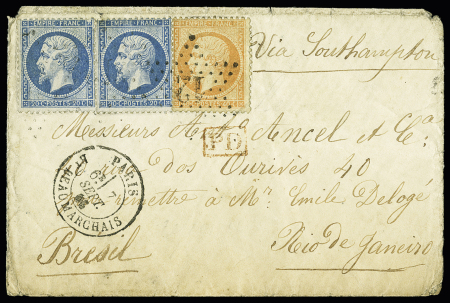 EMPIRE FRANC. EMPIRE FRANC. EMPIRE FRANC.
20 C POSTES 20 C 20 C POSTES 20 C
Via Southampton
Messieurs Ancel et Cia
PD
dos Ourives 40
remettre à Mr. Emile Delogé
PARIS
6E
7
SEPT
BT BEAUMARCHAIS
Bresil
Rio de Janeiro